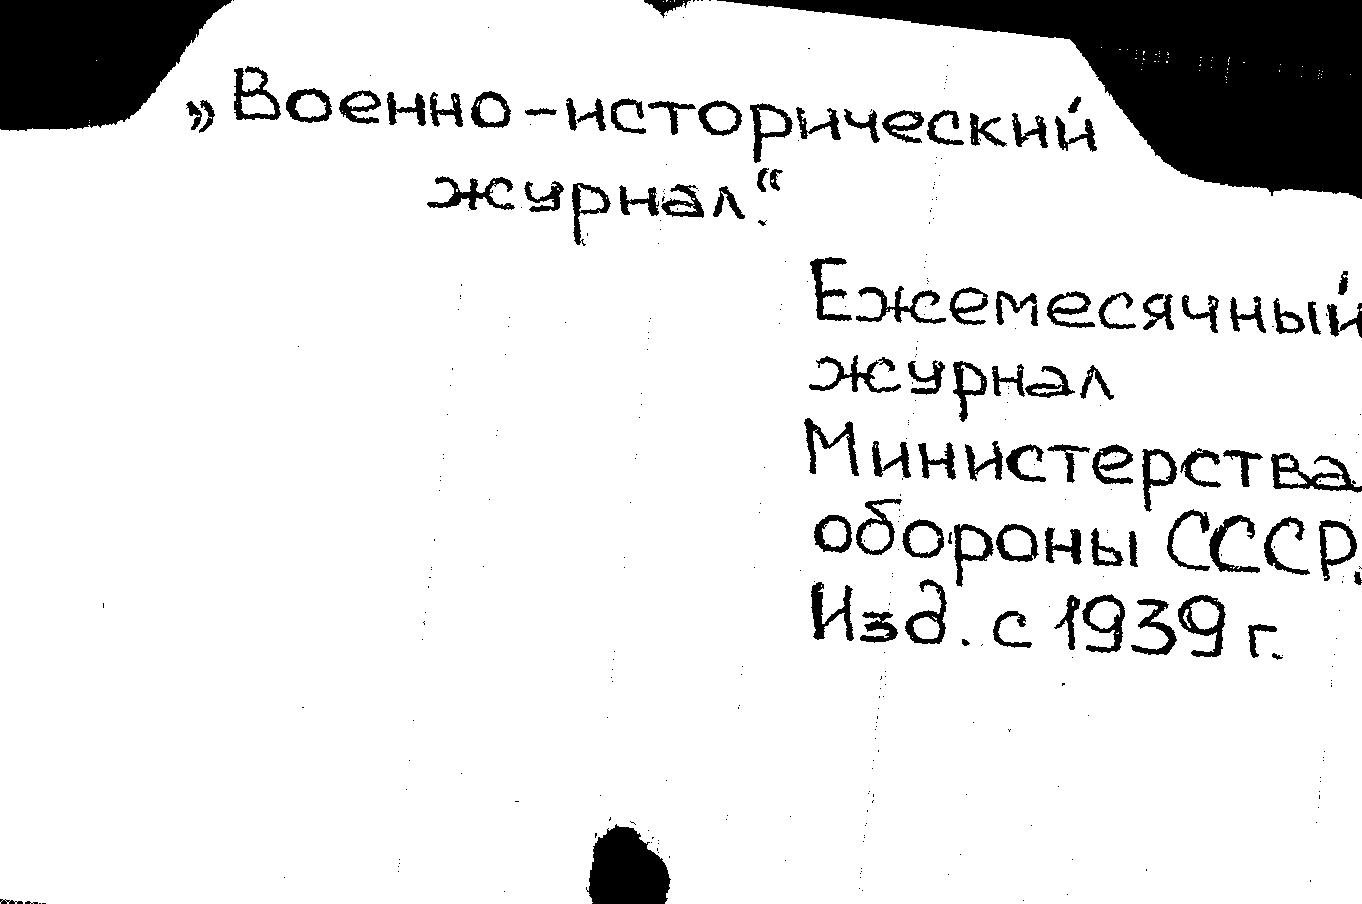 „Военно-исторический
журнал.“
Ежемесячный
журнал
Министерства
обороны СССР.
Изд. с 1939 г.